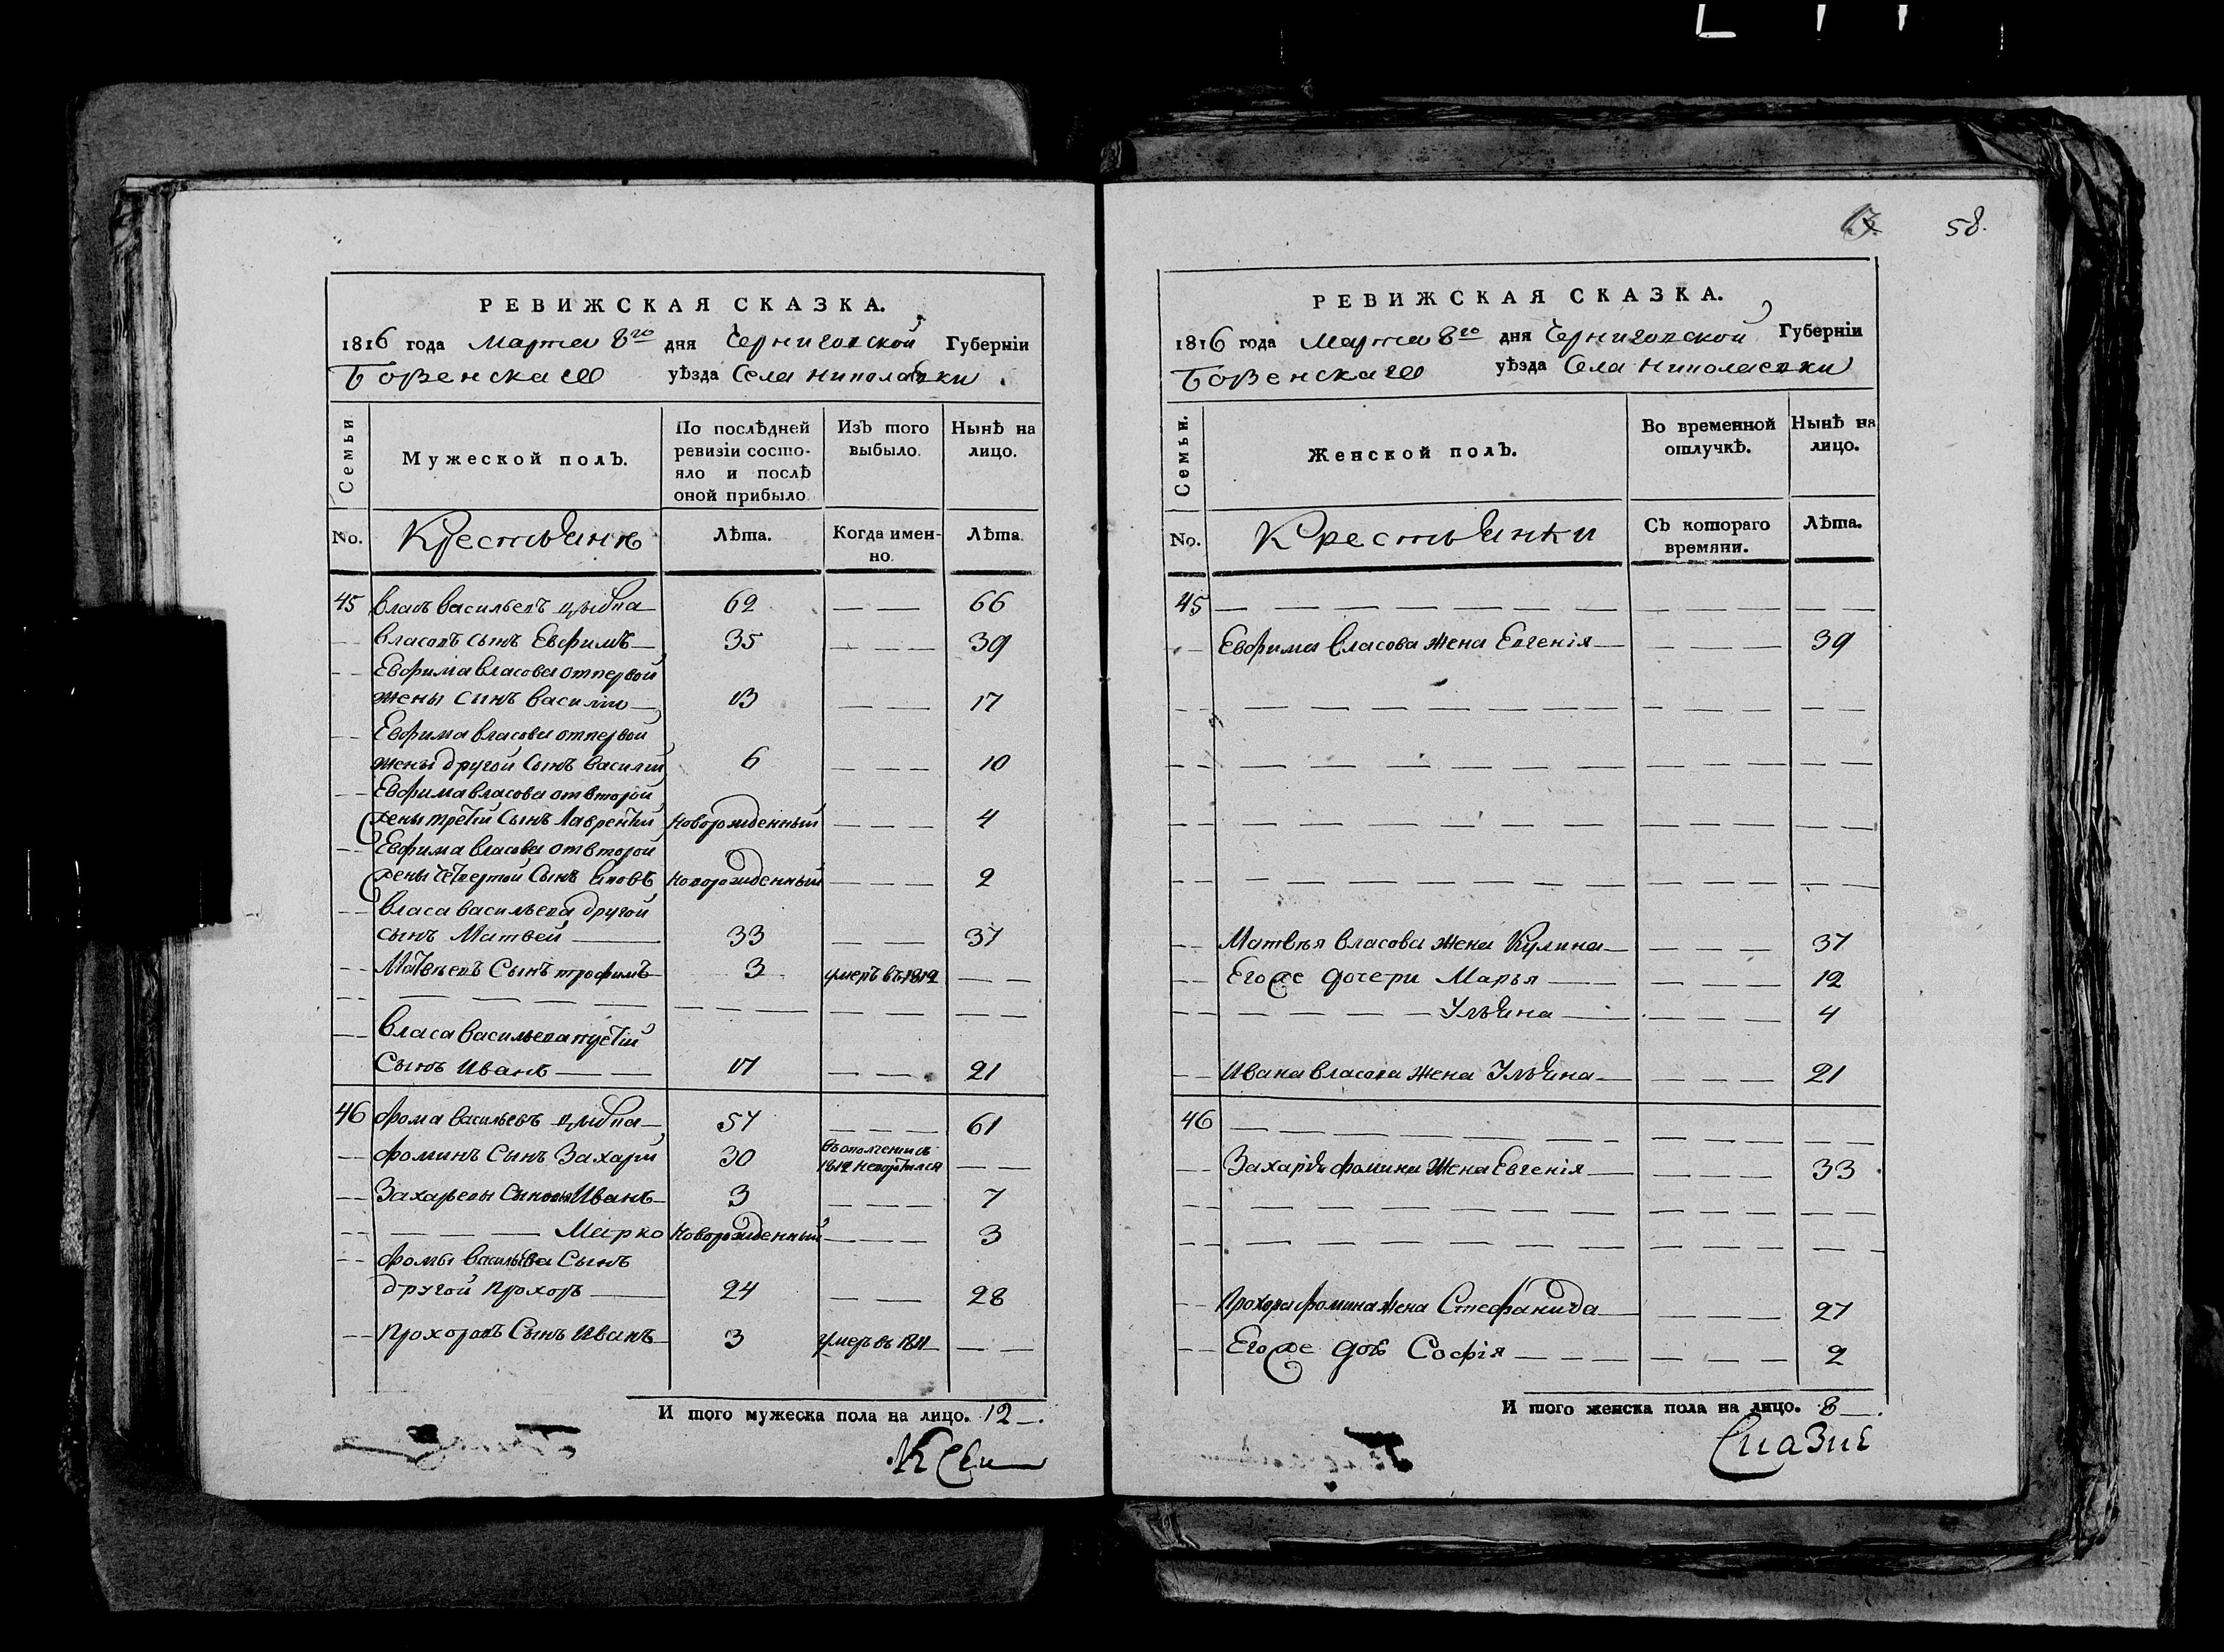 РЕВИЖСКАЯ СКАЗКА.
1816 года Марта 8го дня Черниговской Губернiи
Борзенскаго уѣзда Села Ниполовки
Семьи
Мужеской полЪ.
По послѣдней ревизiи состо-яло и послѣ оной прибыло.
ИзЪ того выбыло.
НынѢ на лицо.
No.
Крестьяне
Лѣта.
Когда имен-но.
Лѣта.
45 Власъ Васильевъ Цыбпа 62 — — 66
— Власовъ сынъ Евфимъ 35 — — — 39
— Евфима Власова отпервой
жены сынъ Василiй 13 — — — 17
— Евфима Власова отпервой
жены другой Сынъ Василий 6 — — — 10
— Евфима Власова отвторой
жены третiй Сынъ Лаврентiй Новорожденный — — — 4
— Евфима Власова отвторой
жены четвертой Сынъ Новорожденный — — — 2
— Власа Васильева другой
сынъ Матвей 33 — — 37
— Матвѣевъ Сынъ трофимъ 3 умеръ въ 1812 — —
— Власа Васильева третiй
Сынъ Иванъ 17 — — 21
46 Фома Васильевъ Цыбпа 57 — — — 61
— Фоминъ Сынъ Захарiй 30 въ ополченiи съ 1812 невортился — —
— Захарьевы Сыновья Иванъ 3 — — — 7
— — — — Марко Новорожденный — — — 3
— Фомы Васильева Сынъ
другой Прохоръ 24 — — 28
— Прохоровъ Сынъ Иванъ 3 умеръ въ 1811 — —
И того мужеска пола на лицо. 12
58.
РЕВИЖСКАЯ СКАЗКА.
1816 года Марта 8го дня Черниговской Губернiи
Борзенскаго уѣзда Села Ниполовки
Семьи.
Женской полЪ.
Во временной отлучкѢ.
НынѢ на лицо.
No.
Крестьянки
СЬ котораго времяни.
Лѣта.
45 — — — — — — — —
— Евфима Власова жена Евгенiя — — — — 39
— Матвѣя Власова жена Кулина — — — 37
— Его же дочери Марья — — — 12
— — — — Ульяна — — — 4
— Ивана Власова жена Ульяна — — — 21
46 — — — — — — — —
— Захарiя Фомина жена Евгенiя — — — 33
— Прохора Фомина жена Стефанида — — — 27
— Его же дочь Софiя — — — 2
И того женска пола на лицо. 8
Сказке